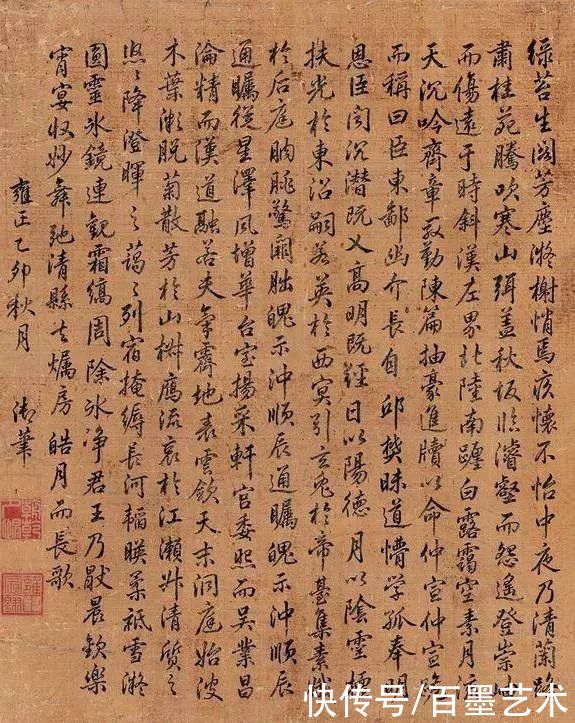 綠苔生閣芳塵凝榭悄焉疚懷不怡中夜乃清蘭路
肅桂苑騰吹寒山弭蓋秋坂臨濬壑而怨遙登崇岫
而傷遠于時斜漢左界北陸南躔白露靄空素月流
天沉吟齊章殷勤陳篇抽毫進牘以命仲宣仲宣跪
而稱曰臣東鄙幽介長自邱樊昧道懵學孤奉明
恩臣聞沉潛既乂高明既經日以陽德月以陰靈擅
扶光於東沼嗣若英於西冥引玄兔於帝臺集素娥
於后庭朒朓驚闕朏魄示沖順辰通矚魄示沖順辰
通矚從星澤風增華台室揚采軒宮委照而吳業昌
淪精而漢道融若夫氣霽地表雲斂天末洞庭始波
木葉漸脫菊散芳於山椒雁流哀於江瀨升清質之
悠々降澄暉之藹々列宿掩縟長河韜映柔祇雪凝
圓靈冰鏡連觀霜縞周除冰淨君王乃猒晨歡樂
宵宴收妙舞弛清縣去燭房皓月而長歌
雍正乙卯秋月 御筆
快传号/百墨艺术